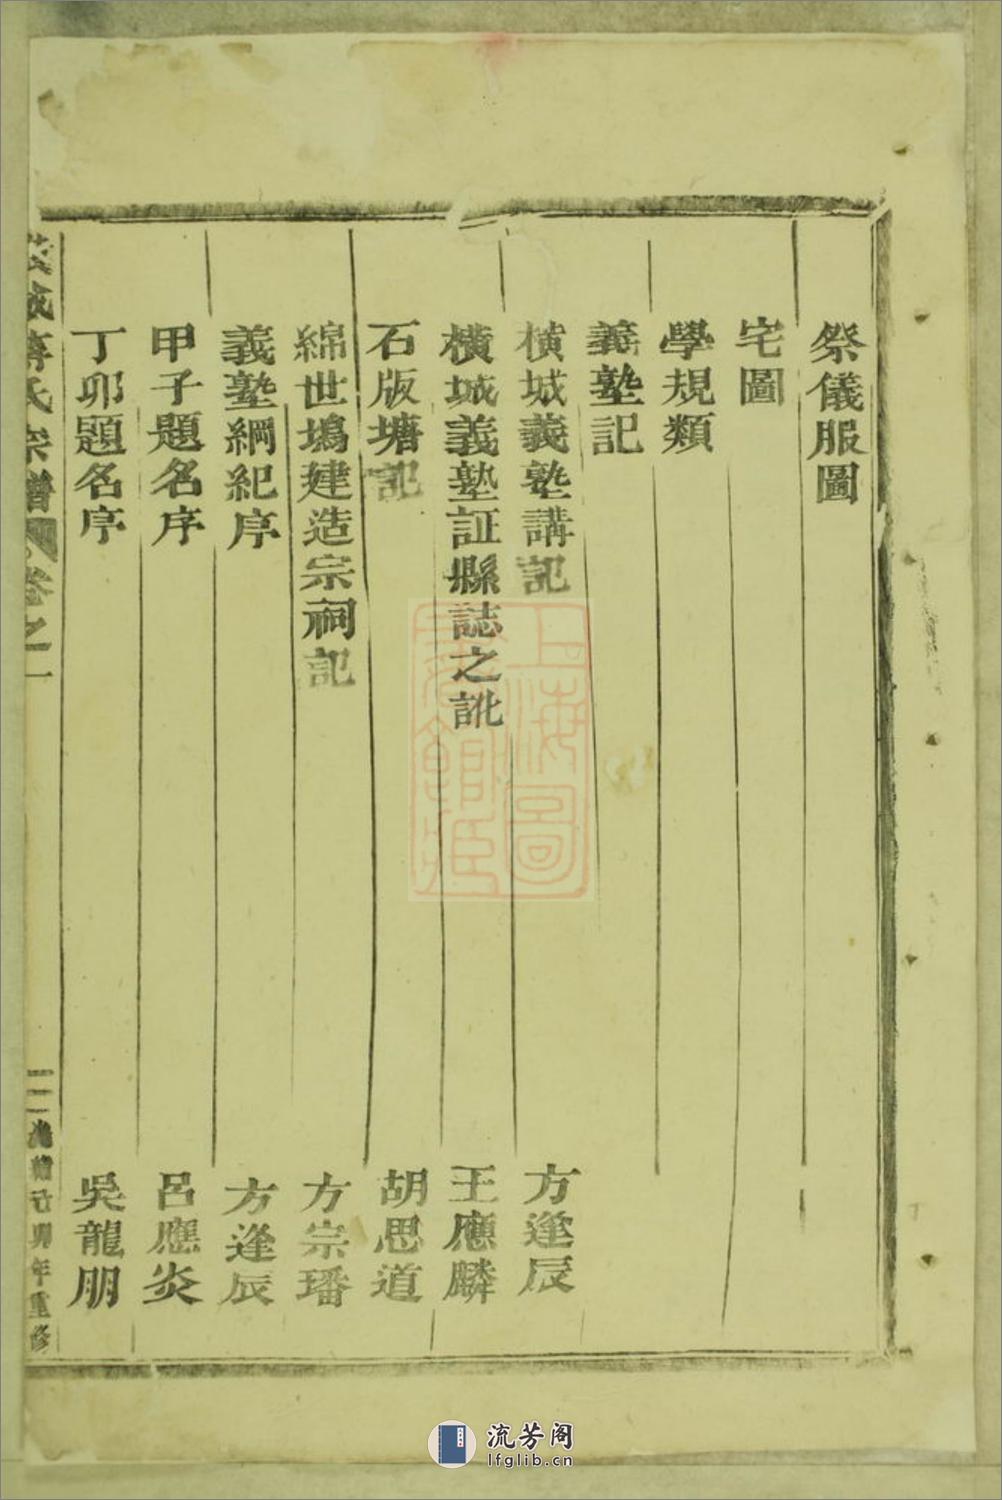 祭儀服圖
宅圖
學規類
義塾記
橫城義塾講記 方逢辰
橫城義塾証縣誌之訛 王應麟
石版塘記 胡思道
綿世塢建造宗祠記 方宗璠
義塾綱紀序 方逢辰
甲子題名序 呂應炎
丁卯題名序 吳龍朋
城蔣氏宗譜 卷之一
二 光緒己卯年重修
上海圖書館藏
流芳阁
lfglib.cn